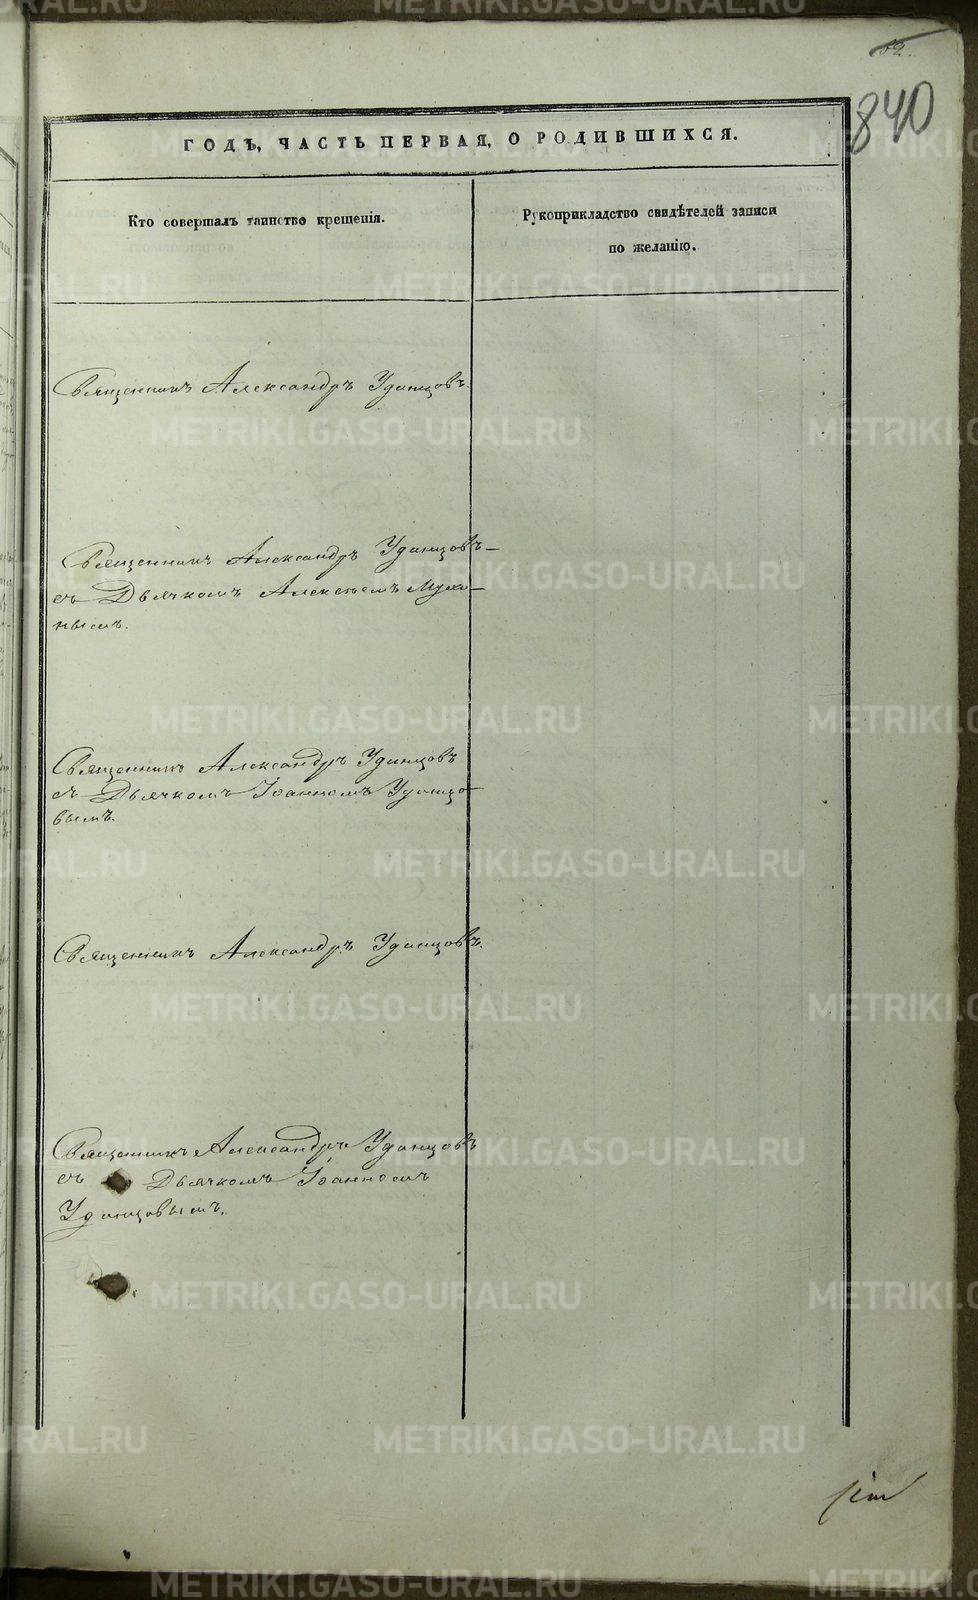 52.
840
ГОДЪ, ЧАСТЬ ПЕРВАЯ, О РОДИВШИХСЯ.
Кто совершалъ таинство крещенія.
Рукоприкладство свидѣтелей записи
по желанію.
Священникъ Александръ Удинцовъ
Священникъ Александръ Удинцовъ
съ Дьячкомъ Алексѣемъ
нымъ.
Священникъ Александръ Удинцовъ
съ Дьячкомъ Іоанномъ Удинцо-
вымъ.
Священникъ Александръ Удинцовъ.
Священникъ Александръ Удинцовъ
съ Дьячкомъ Іоанномъ
Удинцовымъ.
METRIKI.GASO-URAL.RU